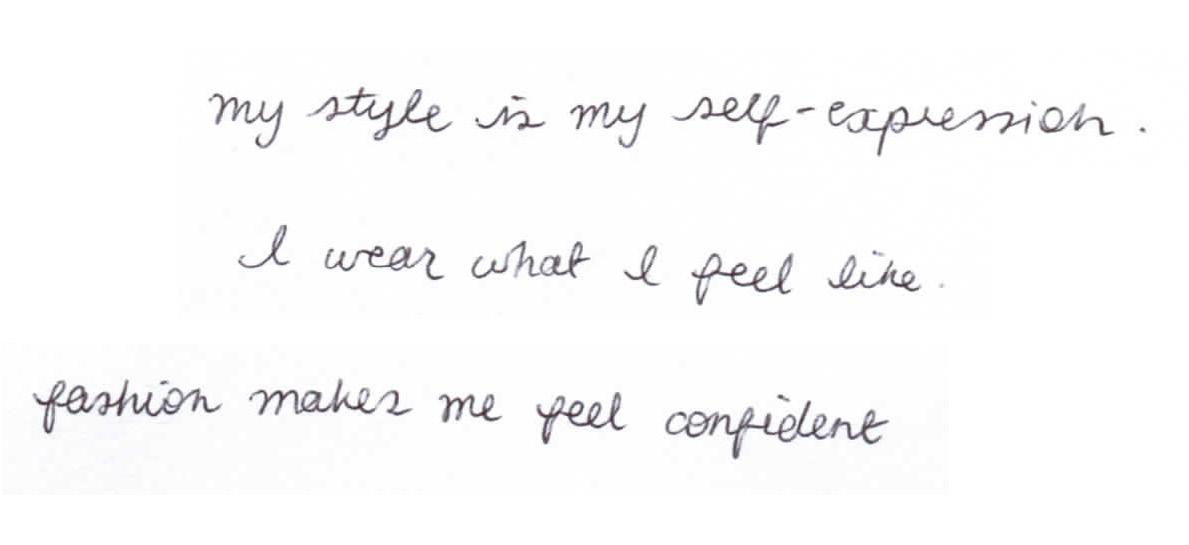 my style is my self-expression.
I wear what I feel like.
fashion makes me feel confident